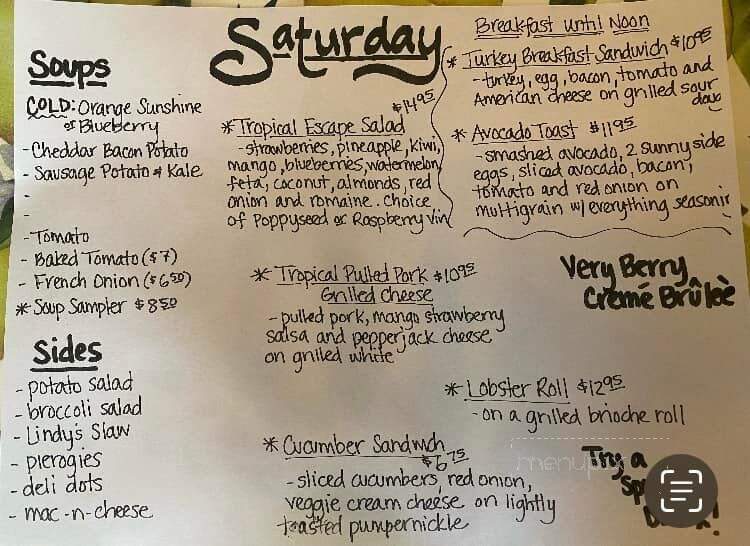 Saturday
Soups
COLD: Orange Sunshine
or Blueberry
- Cheddar Bacon Potato
- Sausage Potato & Kale
-
-
- Tomato
- Baked Tomato ($7)
- French Onion ($6.50)
* Soup Sampler $8.50
Sides
- potato salad
- broccoli salad
- Lindy's Slaw
- pierogies
- deli dots
- mac-n-cheese
$14.95
* Tropical Escape Salad
- strawberries, pineapple, kiwi,
mango, blueberries, watermelon,
feta, coconut, almonds, red
onion and romaine. Choice
of Poppyseed or Raspberry Vin
* Tropical Pulled Pork $10.95
Grilled Cheese
- pulled pork, mango strawberry
salsa and pepperjack cheese
on grilled white
* Cucumber Sandwich
$6.75
- sliced cucumbers, red onion,
veggie cream cheese on lightly
toasted pumpernickle
Breakfast until Noon
* Turkey Breakfast Sandwich $10.95
- turkey, egg, bacon, tomato and
American cheese on grilled sour
doug
* Avocado Toast $11.95
- smashed avocado, 2 sunnyside
eggs, sliced avocado, bacon,
tomato and red onion on
multigrain w/everything seasonin
Very Berry
Cremé Brûleè
* Lobster Roll $12.95
- on a grilled brioche roll
Try a
Sp